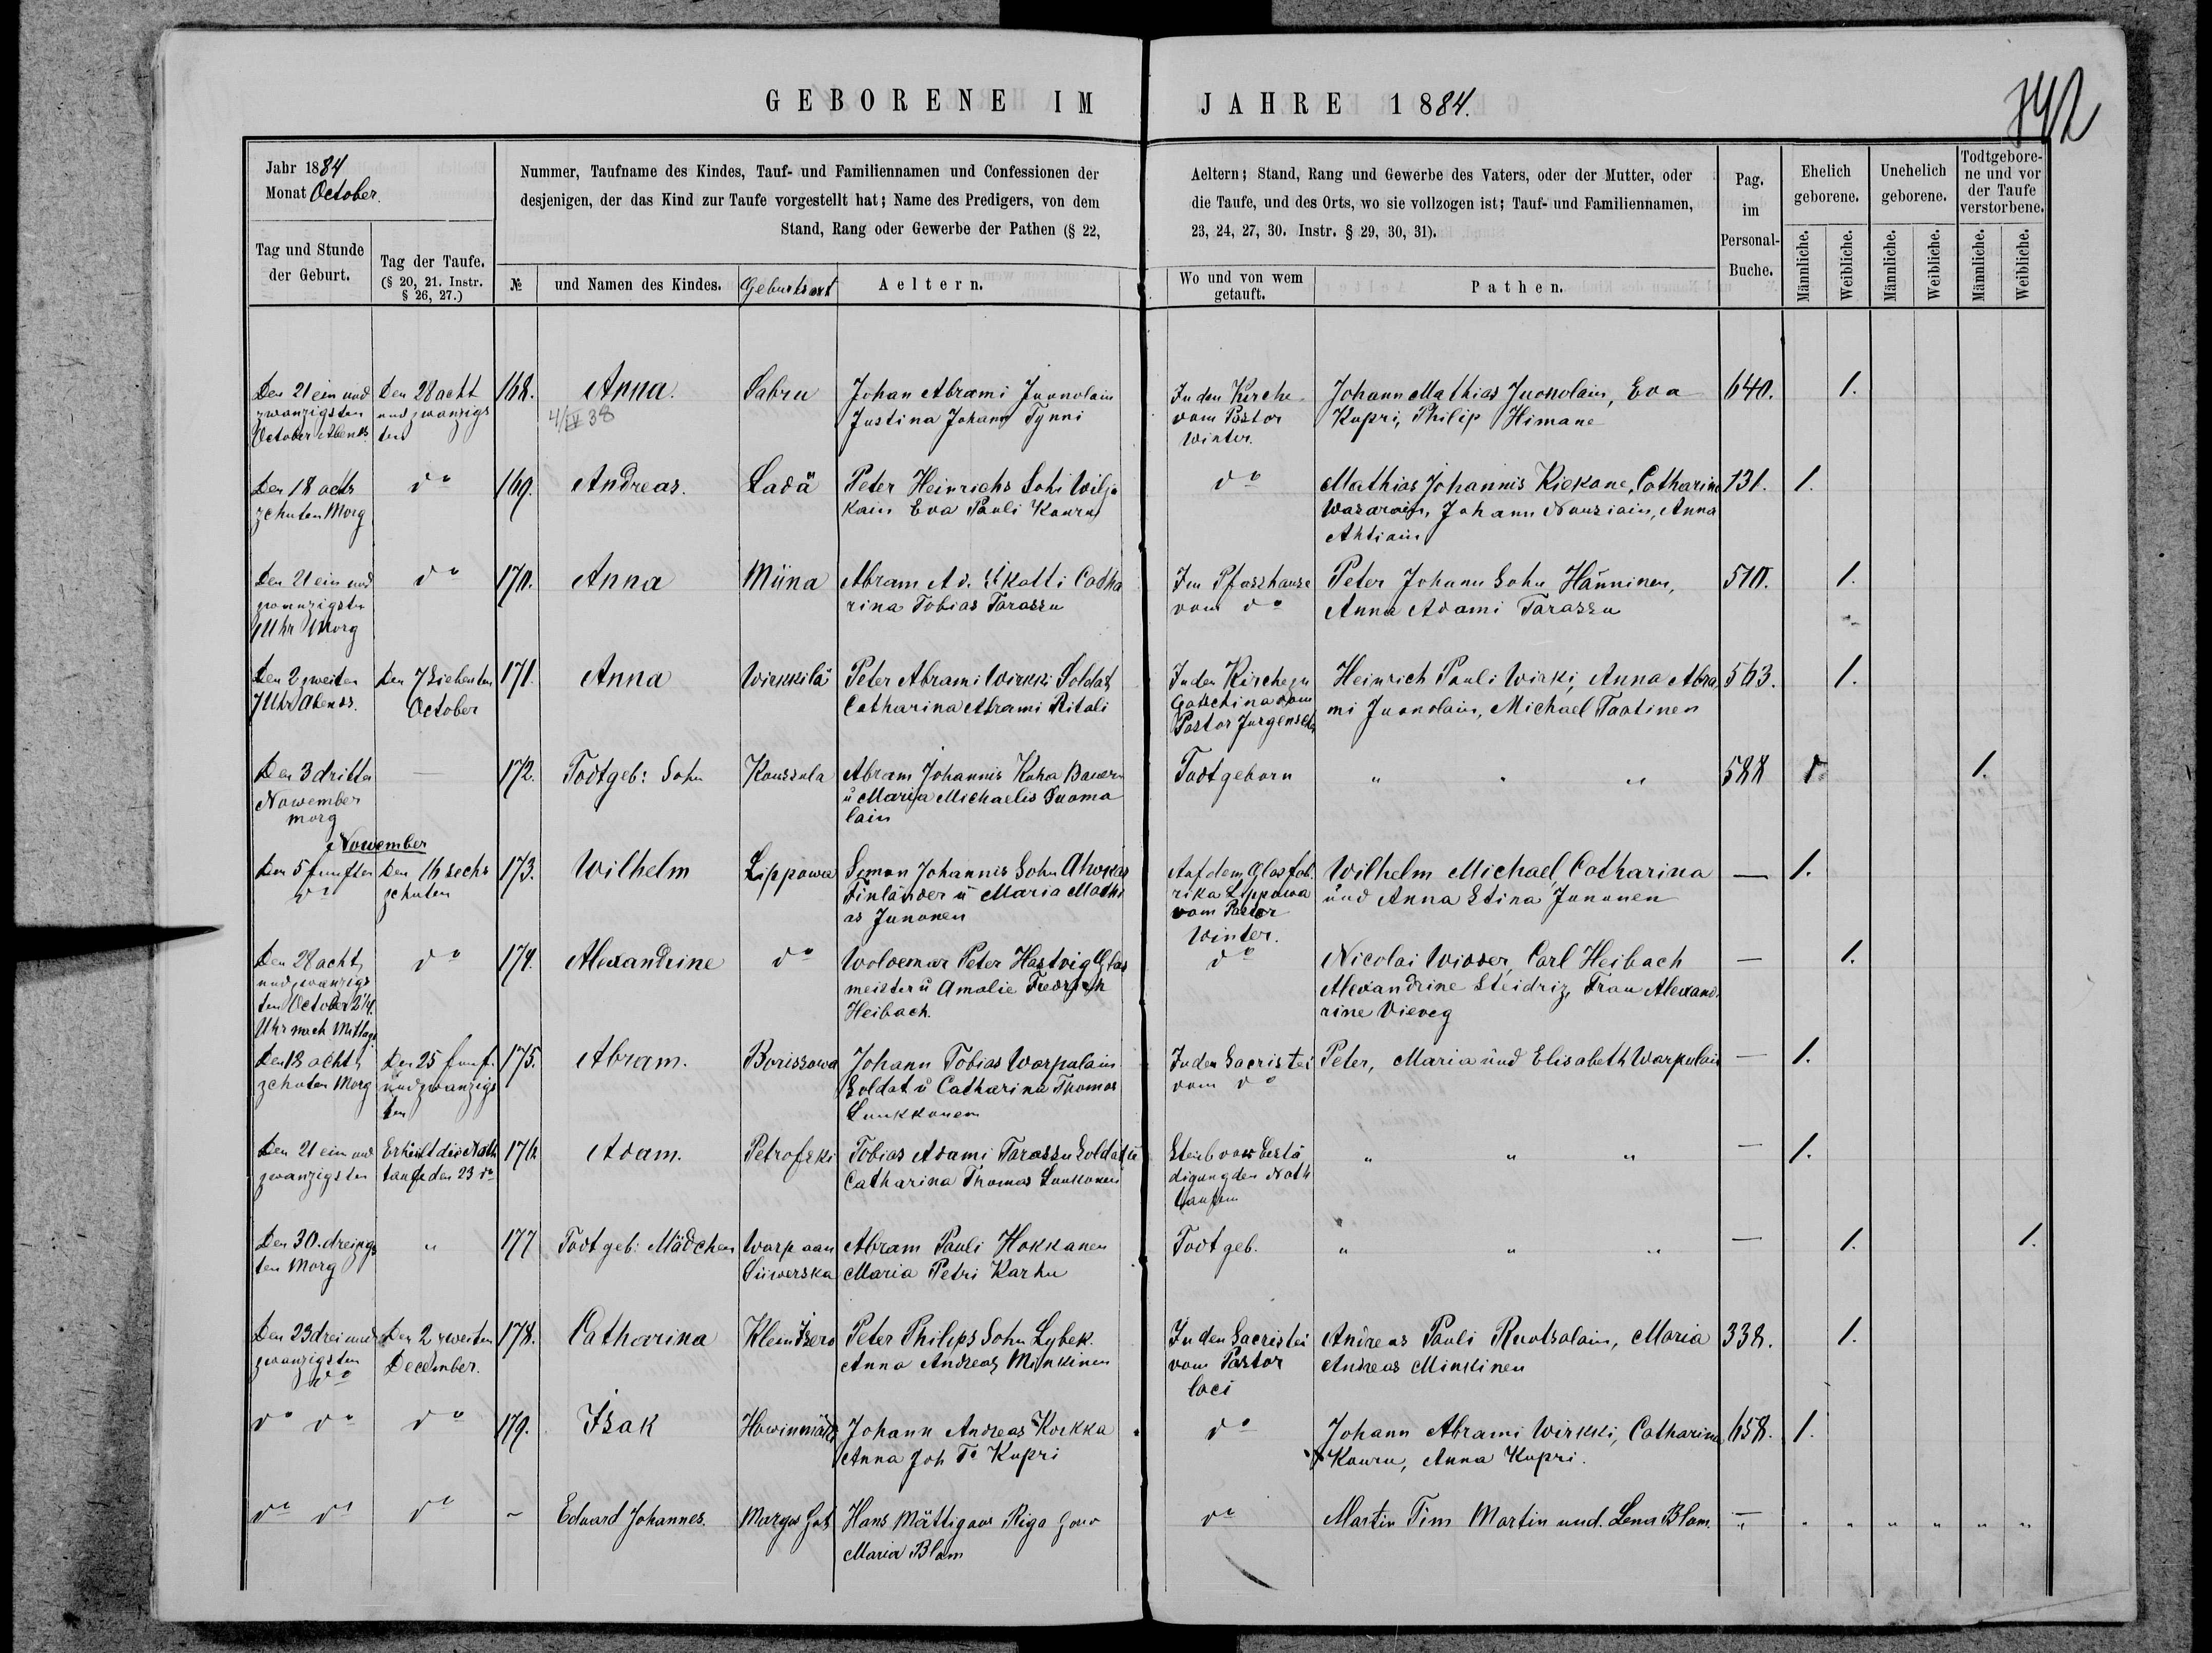 GEBORENE IM JAHRE 1884.
742
Jahr 1884
Monat October.
Nummer, Taufname des Kindes, Tauf- und Familiennamen und Confessionen der
desjenigen, der das Kind zur Taufe vorgestellt hat; Name des Predigers, von dem
Stand, Rang oder Gewerbe der Pathen (§ 22,
Aeltern; Stand, Rang und Gewerbe des Vaters, oder der Mutter, oder
die Taufe, und des Orts, wo sie vollzogen ist; Tauf- und Familiennamen,
23, 24, 27, 30. Instr. § 29, 30, 31).
Pag.
im
Personal-
Buche.
Ehelich
geborene.
Unehelich
geborene.
Todtgebore-
ne und vor
der Taufe
verstorbene.
Tag und Stunde
der Geburt.
Tag der Taufe.
(§ 20, 21. Instr.
§ 26, 27.)
№
und Namen des Kindes.
Geburtsort
Aeltern.
Wo und von wem
getauft.
Pathen.
Männliche.
Weibliche.
Männliche.
Weibliche.
Männliche.
Weibliche.
Den 21 ein und
zwanzigsten
October Abends
Den 28 acht
und zwanzigs
ten
168.
Anna.
4/IV 38
Sabru
Johan Abrami Juonolain
Justina Johann Tynni
In der Kirche
vom Pastor
Winter.
Johann Mathias Juonolain, Eva
Kupri, Philip Himane
640.
1.
Den 18 acht
zehnten Morg
do
169.
Andreas.
Ladä
Peter Heinrichs Sohn Wilja
kain Eva Pauli Kauru
do
Mathias Johannis Kiekane, Catharina
Wasarain, Johann Nousiain, Anna
Ahtiain
131.
1.
Den 21 ein und
zwanzigsten
Uhr Morg
do
170.
Anna
Miina
Abram Ad. Skotti Catha
rina Tobias Tarassu
Im Pfarrhause
vom do
Peter Johann Sohn Hänninen,
Anna Adami Tarassu
510.
1.
Den 2 zweiten
7 Uhr Abends.
Den 7 Siebenten
October
171.
Anna
Wirkkilä
Peter Abrami Wirkki Soldat
Catharina Abrami Ritali
In der Kirche zu
Gatschina vom
Pastor Jurgensen
Heinrich Pauli Wirki, Anna Abra
mi Juonolain, Michael Taatinen
563.
1.
Den 3 dritten
Nowember
morg
—
172.
Todtgeb: Sohn
Koussula
Abram Johannis Koha Bauern
u Maria Michaelis Suoma
lain
Todtgeborn
" " "
588
1
1.
Nowember
Den 5 funften
do
Den 16 sechs
zehnten
173.
Wilhelm
Lippowa
Simon Johannis Sohn Ahwkas
Finländer u Maria Mathi
as Junonen
Auf dem Glasfab
rika Lippowa
vom Pastor
Winter.
Wilhelm Michael, Catharina
und Anna Stina Junonen
—
1.
Den 28 acht
und zwanzigs
ten October 2 1/4.
Uhr nach Mittags
do
174.
Alexandrine
do
Woldemar Peter Hastvig Glas
meister u Amalie Fredrich
Heibach.
do
Nicolai Widder, Carl Heibach
Alexandrine Steidriz, Frau Alexand
rine Vieveg
—
1.
Den 18 acht
zehnten Morg
Den 25 funf
und zwanzigs
ten
175.
Abram.
Borissowa
Johann Tobias Warpulain
Soldat u Catharina Thomas
Luukkonen
In der Sacristei
vom do
Peter, Maria und Elisabeth Warpulain
—
1.
Den 21 ein und
zwanzigsten
Erhielt die Noth
taufe den 23 do
176
Adam.
Petrofski
Tobias Adami Tarassu Soldat u
Catharina Thomas Luukonen
Starb vor Bestä
digung der Noth
taufe
" " "
—
1.
Den 30. dreizigs
ten Morg
"
177
Todt geb: Mädchen
Warpaan
Siiwerska
Abram Pauli Hokkanen
Maria Petri Karhu
Todt geb.
" " "
—
1.
1.
Den 23 drei und
zwanzigsten
do
Den 2 zweiten
December.
178.
Catharina
Klein Isero
Peter Philips Sohn Lybek.
Anna Andreas Minkinen
In der Sacristei
vom Pastor
loci
Andreas Pauli Ruotsalain, Maria
Andreas Minkinen
338.
1.
do do
do
179.
Isak
Howinmäki
Johann Andreas Korkka
Anna Joh To Kupri
do
Johann Abrami Wirkki, Catharina
Kauru, Anna Kupri.
658.
1.
do do
do
–
Eduard Johannes.
Hans Mättigaus Riga Gouv
Maria Blam
do
Martin Tim Martin und. Lena Blam.
—
" " " " " "